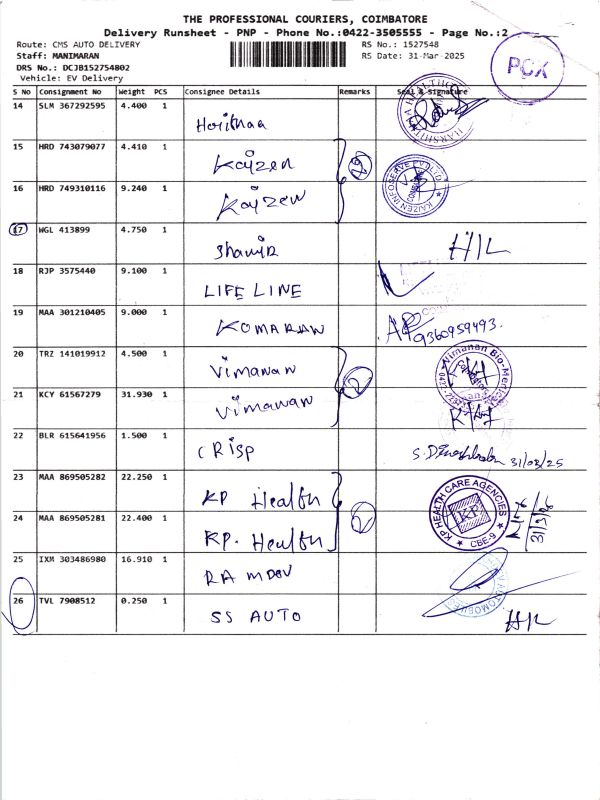 THE PROFESSIONAL COURIERS, COIMBATORE
Delivery Runsheet - PNP - Phone No.:0422-3505555 - Page No.:2
Route: CMS AUTO DELIVERY
Staff: MANIMARAN
DRS No.: DCJB152754802
Vehicle: EV Delivery
RS No.: 1527548
RS Date: 31-Mar-2025
PCX
S No Consignment No Weight PCS Consignee Details Remarks Seal & Signature
14 SLM 367292595 4.400 1
15 HRD 743079077 4.410 1 Kaizen
16 HRD 749310116 9.240 1 Kaizen
KAIZEN INFOSERVE PVT LTD
17 WGL 413899 4.750 1 Shamir
18 RJP 3575440 9.100 1 LIFE LINE
19 MAA 301210405 9.000 1 KOMARAN
9360959493.
20 TRZ 141019912 4.500 1 Vimanan
21 KCY 61567279 31.930 1 Vimanan
2
Vimanan Bio-Medical
22 BLR 615641956 1.500 1 CRISP
31/03/25
23 MAA 869505282 22.250 1 KP Health
24 MAA 869505281 22.400 1 KP. Health
2
KP HEALTH CARE AGENCIES
KP
★ CBE-9 ★
25 IXM 303486980 16.910 1 RAMDEV
26 TVL 7908512 0.250 1 SS AUTO